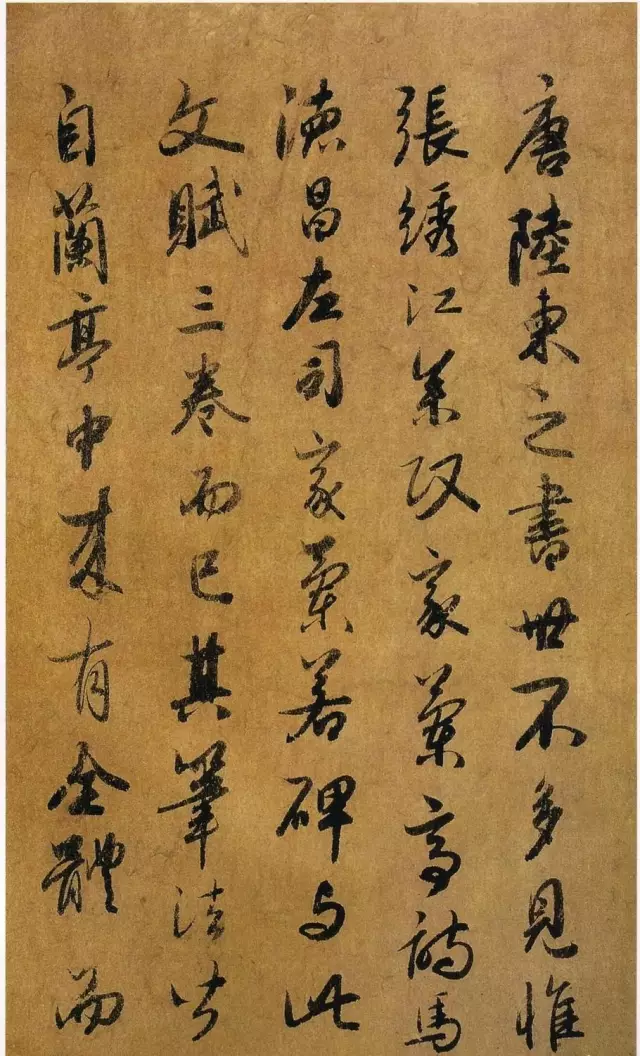 唐陸柬之書世不多見惟
張繡江參政家蘭亭詩馬
德昌左司家蘭若碑与此
文賦三卷而已其筆法皆
自蘭亭中來有全體而